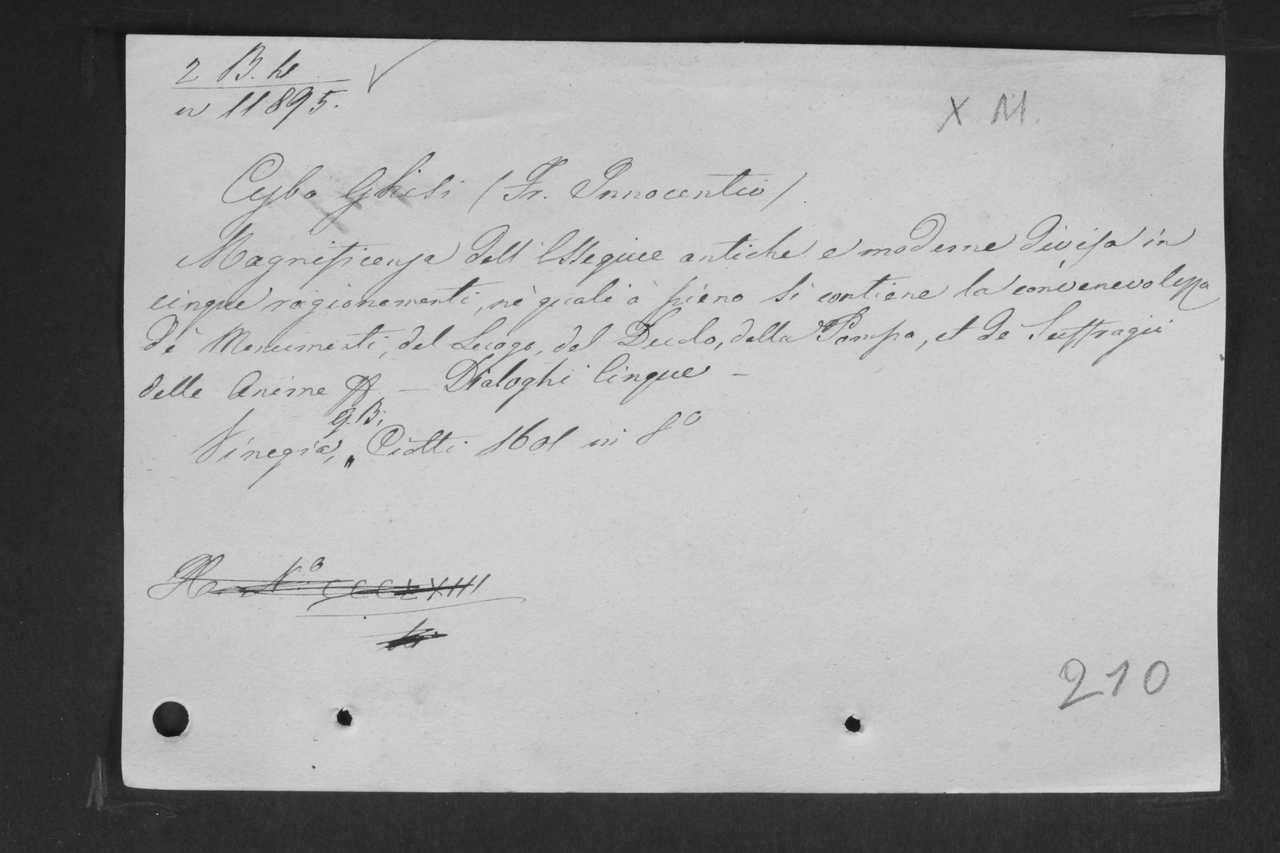 2 B. h
n 11895.
X M.
Cybo Ghisi (Fr. Innocentio).
Magnificenza dell'Essequice antiche e moderne divisa in
cinque ragionamenti, nè quali à pieno si contiene la convenevolezza
dè Monumenti, del Luogo, del Duolo, della Pompa, et de Suffragii
delle Anime — Dialoghi Cinque —
g. B.
Vinegia, „ Ciotti 1601 in 8º
Nº CCCLXIII
210